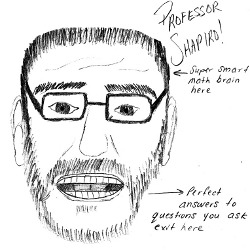 PROFESSOR
SHAPIRO!
Super smart
math brain
here
Perfect
answers to
questions you ask
exit here